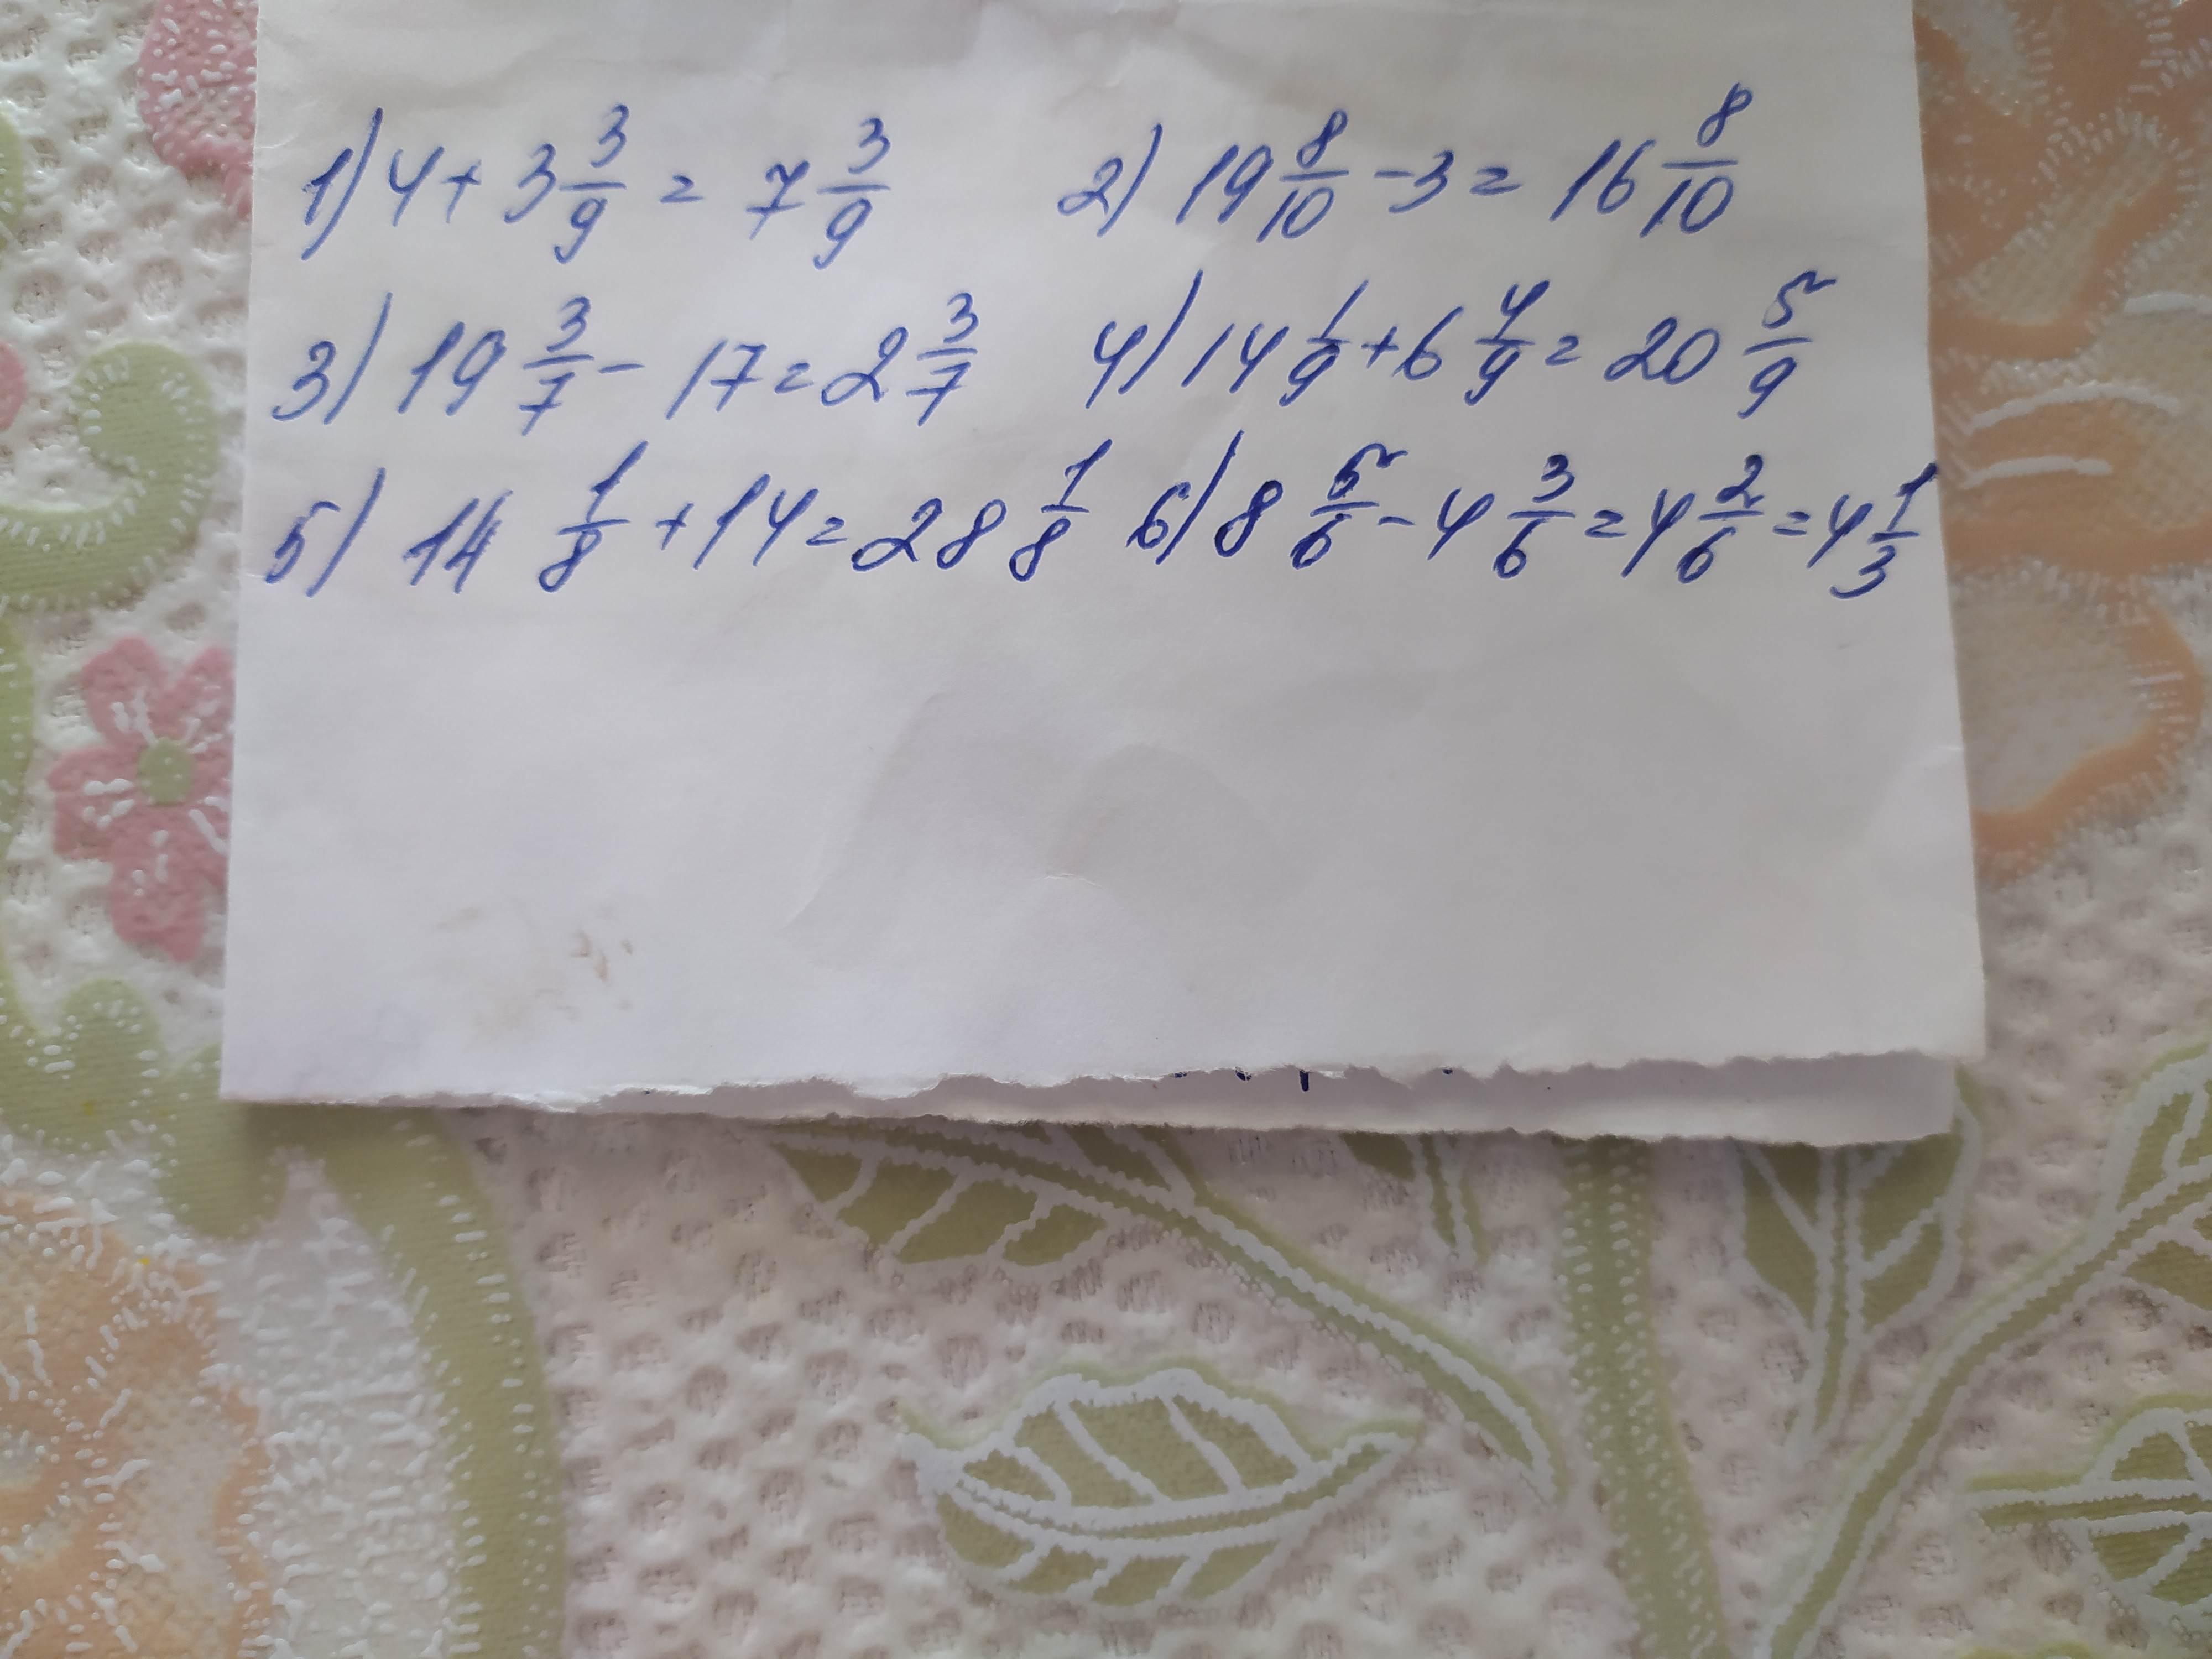 1) 4 + 3 3/9 = 7 3/9 2) 19 8/10 - 3 = 16 8/10
3) 19 3/7 - 17 = 2 3/7 4) 14 1/9 + 6 4/9 = 20 5/9
5) 14 1/8 + 14 = 28 1/8 6) 8 5/6 - 4 3/6 = 4 2/6 = 4 1/3